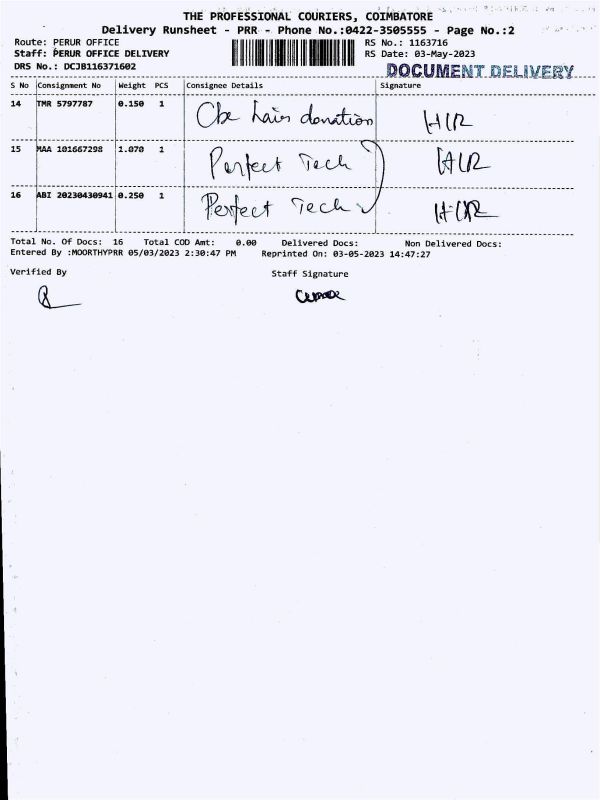 THE PROFESSIONAL COURIERS, COIMBATORE
Delivery Runsheet - PRR - Phone No.:0422-3505555 - Page No.:2
Route: PERUR OFFICE
Staff: PERUR OFFICE DELIVERY
DRS No.: DCJB116371602
RS No.: 1163716
RS Date: 03-May-2023
DOCUMENT DELIVERY
S No Consignment No Weight PCS Consignee Details Signature
14 TMR 5797787 0.150 1 Cbe hair donation
15 MAA 101667298 1.070 1 Perfect Tech
16 ABI 20230430941 0.250 1 Perfect Tech
Total No. Of Docs: 16 Total COD Amt: 0.00 Delivered Docs: Non Delivered Docs:
Entered By :MOORTHYPRR 05/03/2023 2:30:47 PM Reprinted On: 03-05-2023 14:47:27
Verified By Staff Signature